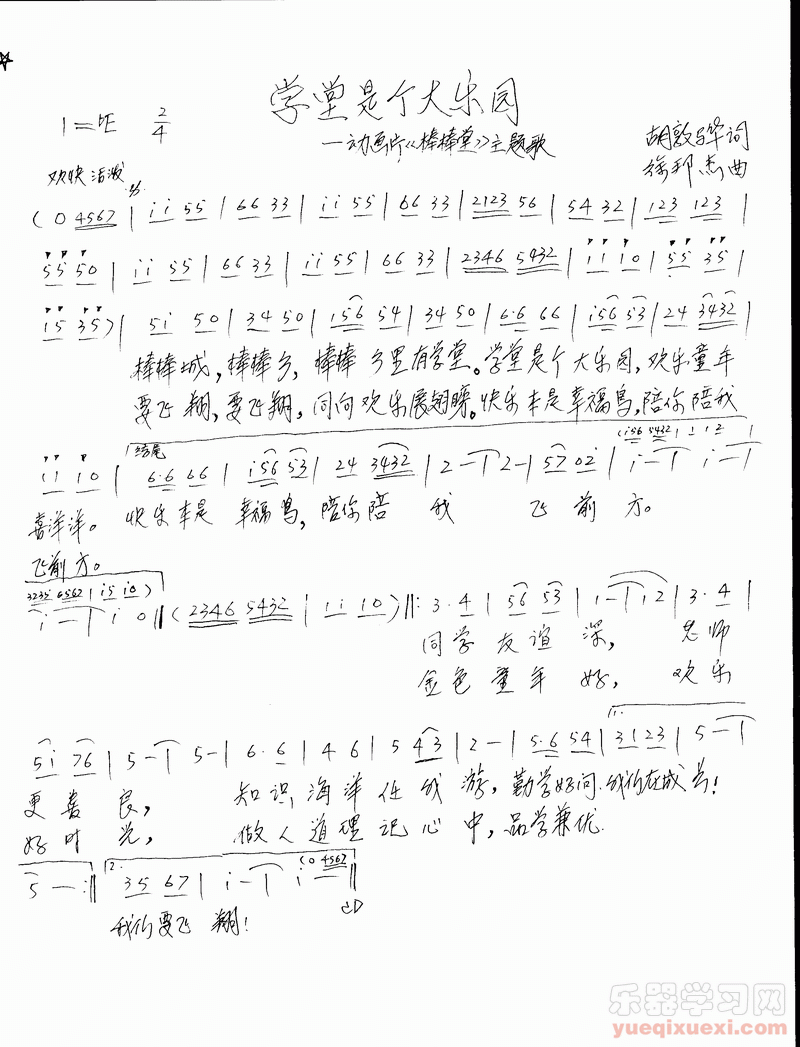 学堂是个大乐园
1=♭E 2/4
—动画片《棒棒堂》主题歌
胡敦骅词
徐邦杰曲
欢快 活泼
(0 4567 | i i 5 5 | 6 6 3 3 | i i 5 5 | 6 6 3 3 | 2123 5 6 | 5 4 3 2 | 123 123 |
5 5 5 0 | i i 5 5 | 6 6 3 3 | i i 5 5 | 6 6 3 3 | 2346 5432 | 1 1 1 0 | 5 5 3 5 |
1 5 3 5) | 5 i 5 0 | 3 4 5 0 | i56 5 4 | 3 4 5 0 | 6·6 6 6 | i56 5 3 | 2 4 3432 |
棒棒城,棒棒乡,棒棒乡里有学堂。学堂是个大乐园,欢乐童年
要飞翔,要飞翔,同向欢乐展翅膀。快乐本是幸福鸟,陪你陪我
(i56 5432 | 1 1 2 1
1 1 1 0 | 结尾 6·6 6 6 | i56 5 3 | 2 4 3432 | 2 — | 2 — | 5 7 0 2 | i — | i — |
喜洋洋。 快乐本是 幸福鸟,陪你陪 我 飞 前 方。
飞前方。
3235 6562 | i 5 i 0)
i — | i 0 || (2346 5432 | 1 1 1 0) ||: 3· 4 | 5 6 5 3 | 1 — | 1 2 | 3· 4 |
同学 友谊 深, 老师
金色 童年 好, 欢乐
5 i 7 6 | 5 — | 5 — | 6· 6 | 4 6 | 5 4 3 | 2 — | 5·6 5 4 | 1. 3 1 2 3 | 5 — |
更善 良, 知识 海洋 任我 游,勤学好问.我们在成长!
好时 光, 做人 道理 记心 中,品学兼优.
5 — :|| 2. 3 5 6 7 | i — | i (0 4562 ||
D
我们要飞 翔!
乐器学习网
yueqixuexi.com